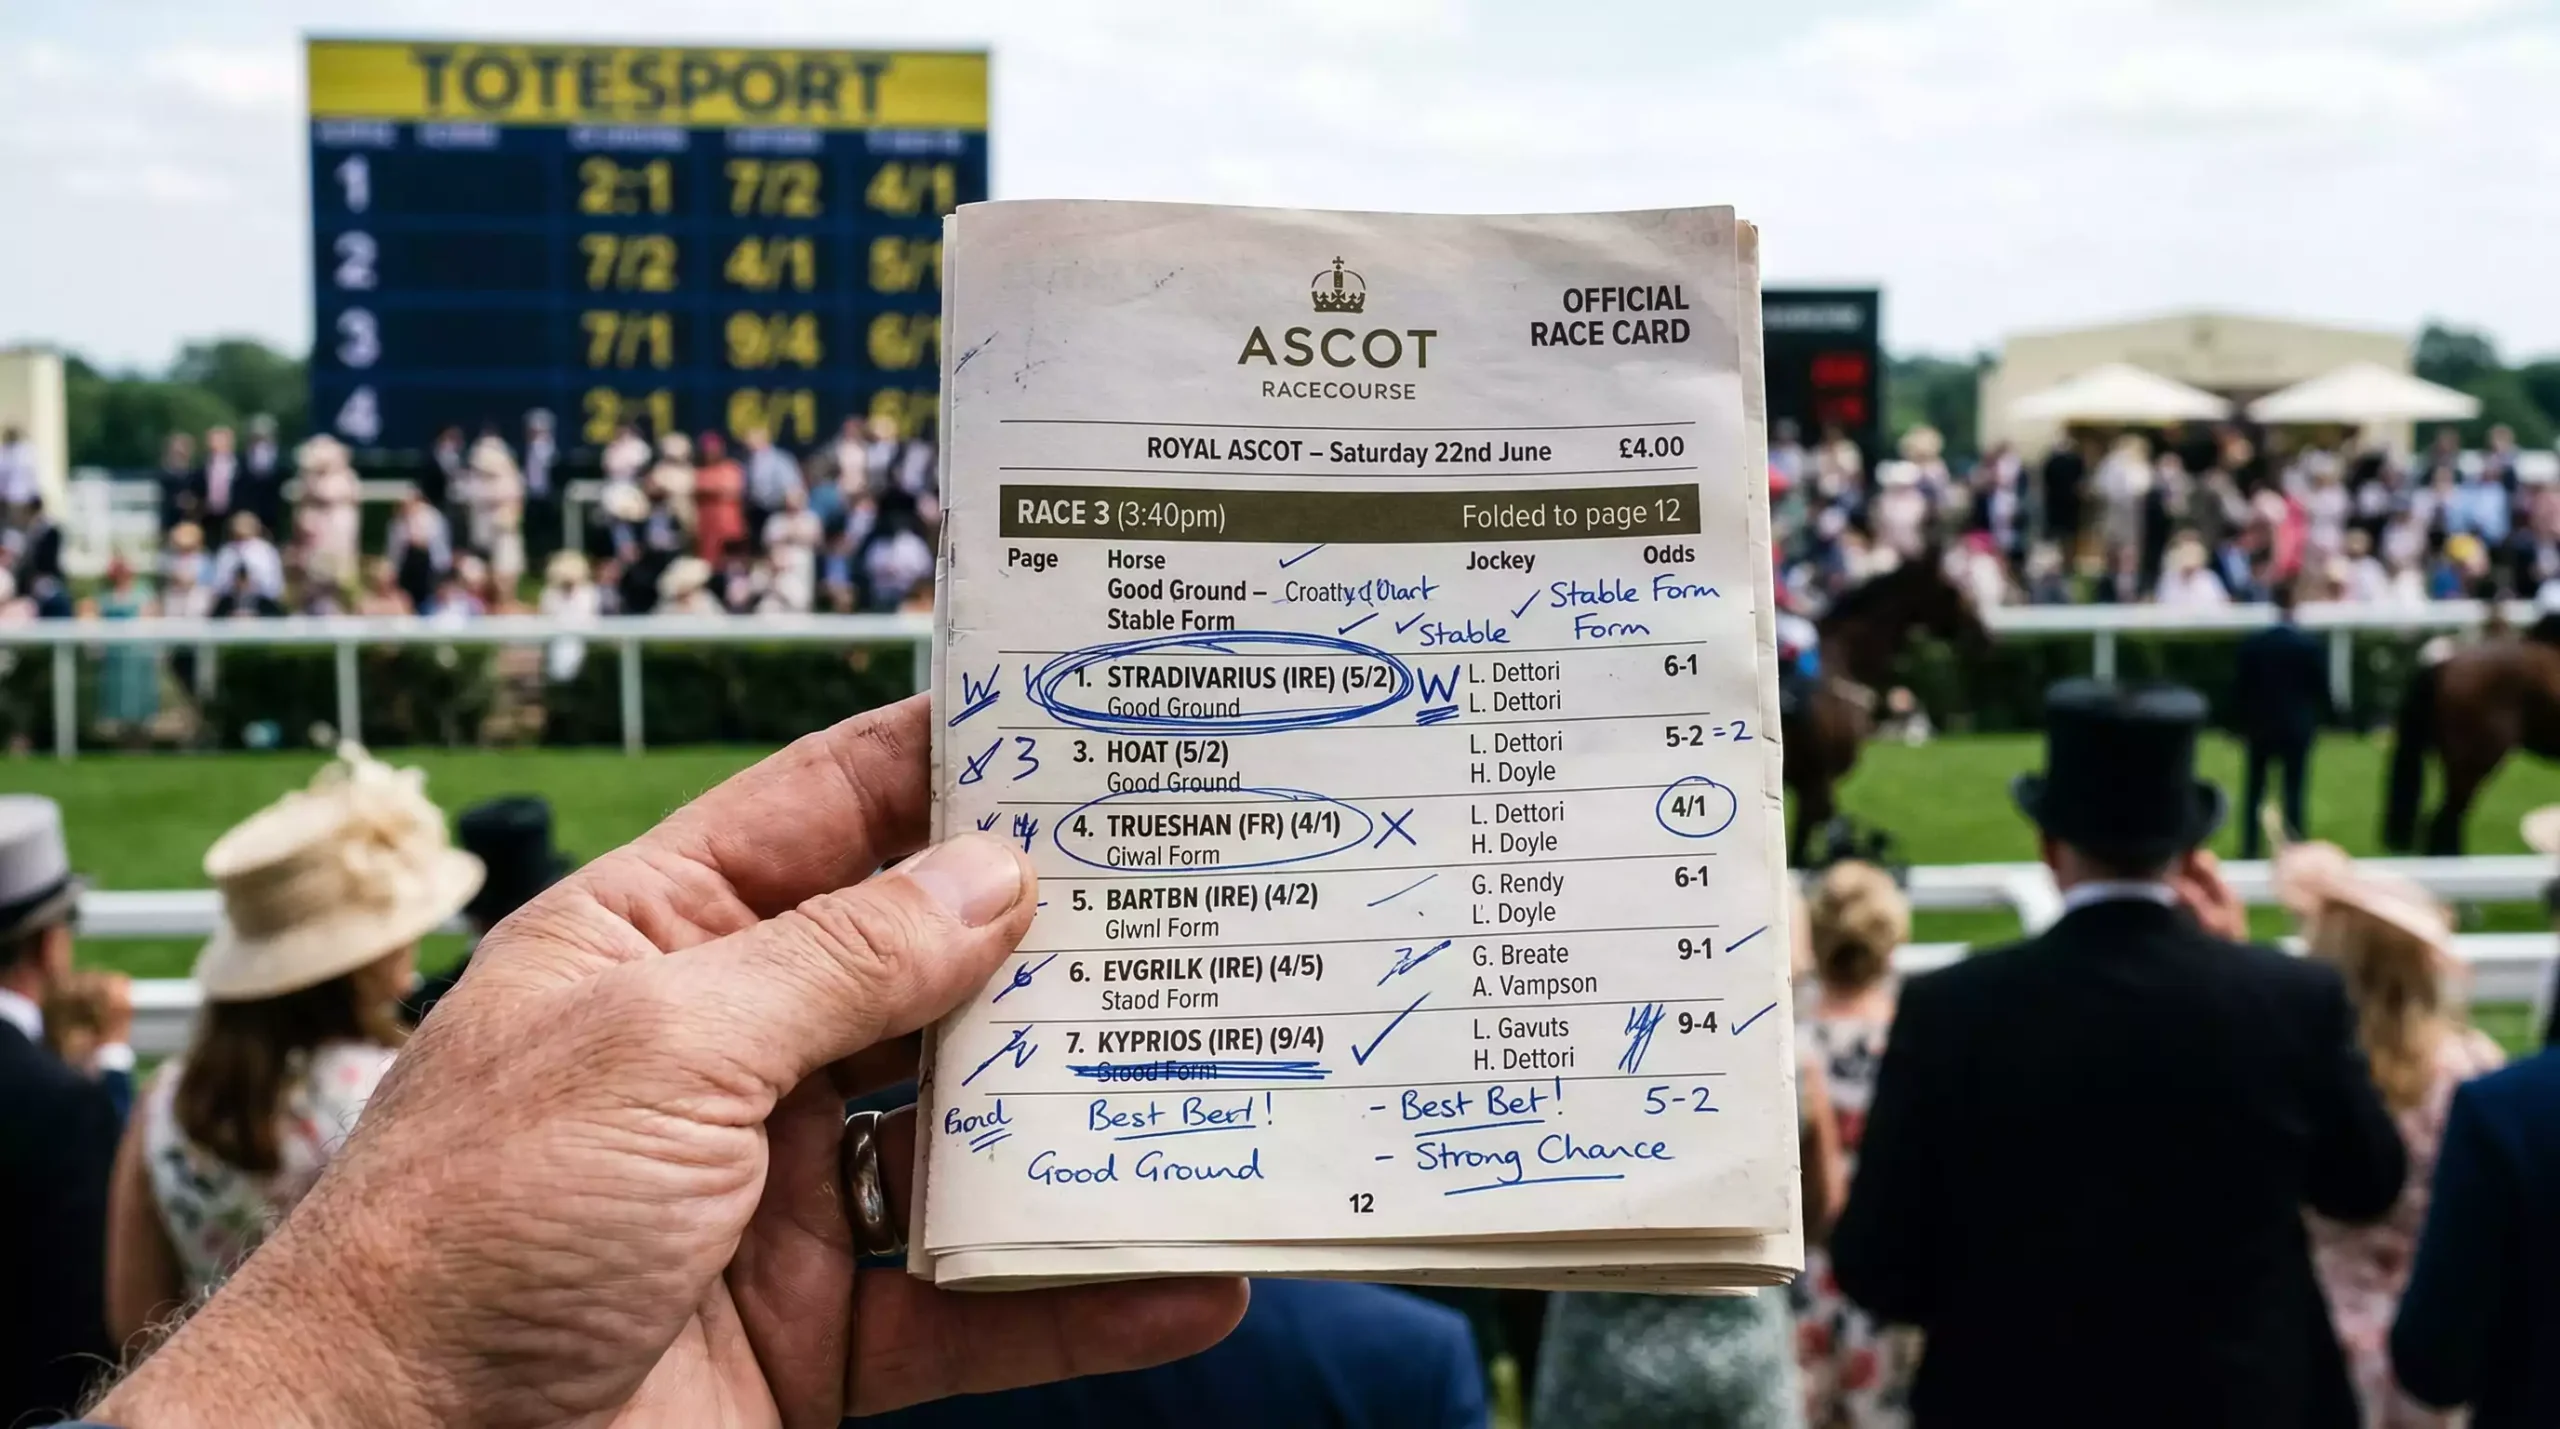 TOTESPORT
1 2:1 7/2 4/1
2 7/2 4/1 5/1
3 7/1 9/4 6/1
4 2:1 6/1 6/1
ASCOT
RACECOURSE
OFFICIAL
RACE CARD
ROYAL ASCOT – Saturday 22nd June £4.00
RACE 3 (3:40pm) Folded to page 12
Page Horse Jockey Odds
Good Ground – Stable Form
Stable Form Stable Form
W 1. STRADIVARIUS (IRE) (5/2) W L. Dettori 6-1
Good Ground L. Dettori
3 3. HOAT (5/2) L. Dettori 5-2 = 2
Good Ground H. Doyle
4. TRUESHAN (FR) (4/1) X L. Dettori 4/1
Giwal Form H. Doyle
5. BARTBN (IRE) (4/2) G. Rendy 6-1
Glwnl Form L. Doyle
6 6. EVGRILK (IRE) (4/5) G. Breate 9-1
Staod Form A. Vampson
7. KYPRIOS (IRE) (9/4) L. Gavuts 9-4
Stood Form H. Dettori
Best Bert! - Best Bet! 5-2
Good Ground - Strong Chance
12